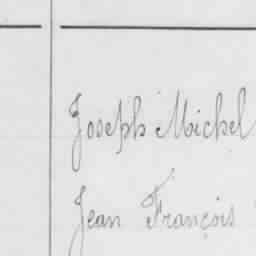 Joseph Michel
Jean François